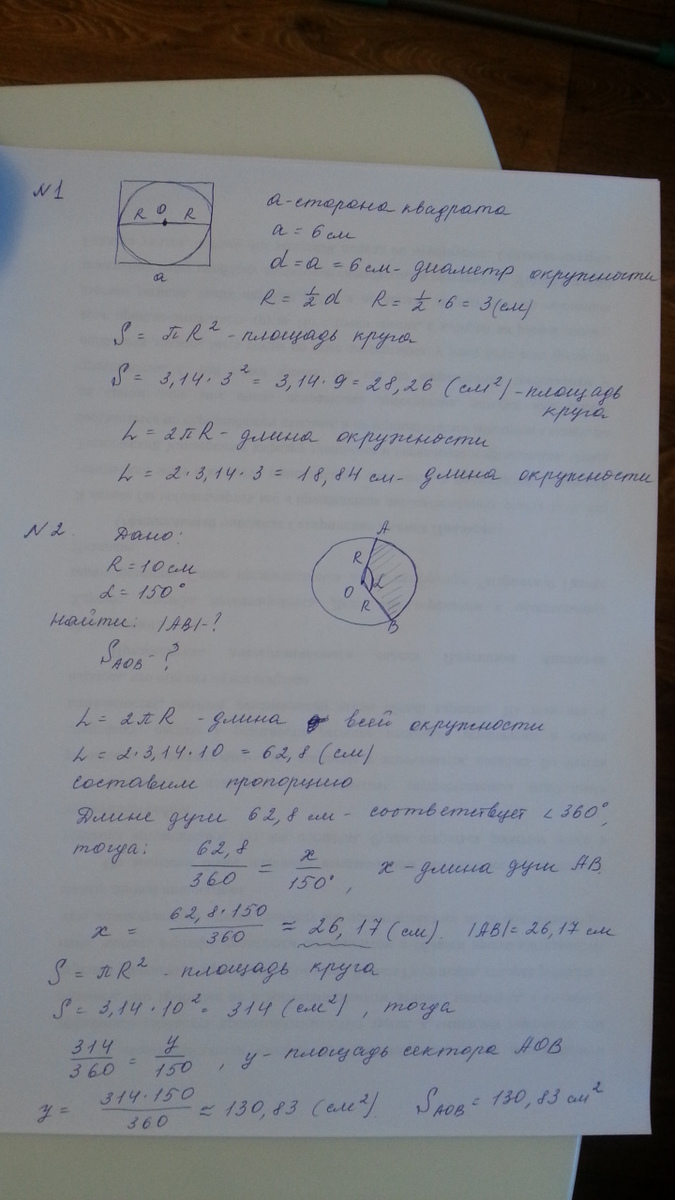 N1
R O R
a
a - сторона квадрата
a = 6 см
d = a = 6 см - диаметр окружности
R = 1/2 d R = 1/2 · 6 = 3 (см)
S = πR² - площадь круга
S = 3,14 · 3² = 3,14 · 9 = 28,26 (см²) - площадь
круга
L = 2πR - длина окружности
L = 2 · 3,14 · 3 = 18,84 см - длина окружности
N2.
Дано:
R = 10 см
α = 150°
Найти: |AB| - ?
S_AOB - ?
A
R
O α
R
B
L = 2πR - длина всей окружности
L = 2 · 3,14 · 10 = 62,8 (см)
составим пропорцию
Длине дуги 62,8 см - соответствует < 360°,
тогда: 62,8/360 = x/150°, x - длина дуги AB.
x = 62,8 · 150/360 ≈ 26,17 (см). |AB| = 26,17 см
S = πR² - площадь круга
S = 3,14 · 10² = 314 (см²), тогда
314/360 = y/150, y - площадь сектора AOB
y = 314 · 150/360 ≈ 130,83 (см²). S_AOB = 130,83 см²